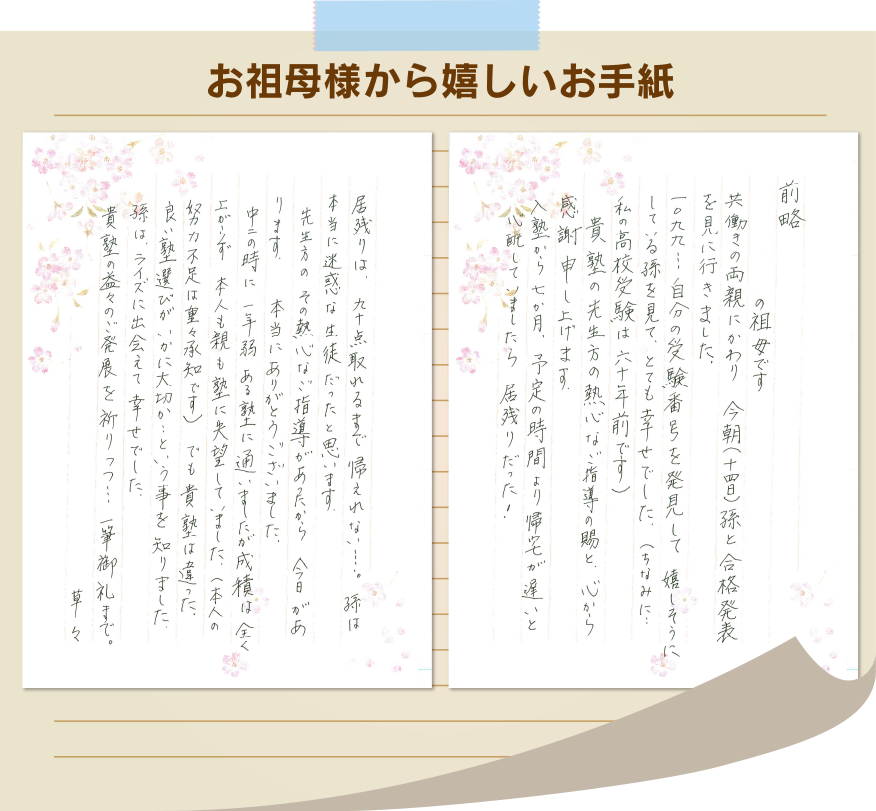 お祖母様から嬉しいお手紙
前略
の祖母です
共働きの両親にかわり 今朝(十四日)孫と合格発表
を見に行きました。
一〇九九…自分の受験番号を発見して 嬉しそうに
している孫を見て、とても幸せでした。(ちなみに…
私の高校受験は六十年前です)
貴塾の先生方の熱心なご指導の賜と、心から
感謝申し上げます。
入塾から七か月、予定の時間より帰宅が遅いと
心配していましたら 居残りだった!
居残りは、九十点取れるまで帰えれない…。孫は
本当に迷惑な生徒だったと思います。
先生方の その熱心なご指導があったから 今日があ
ります。 本当にありがとうございました。
中二の時に 一年弱 ある塾に通いましたが成積は全く
上がらず 本人も親も塾に失望していました。(本人の
努力不足は重々承知です) でも貴塾は違った。
良い塾選びがいかに大切か…という事を知りました。
孫は、ライズに出会えて幸せでした。
貴塾の益々のご発展を祈りつつ… 一筆御礼まで。
草々